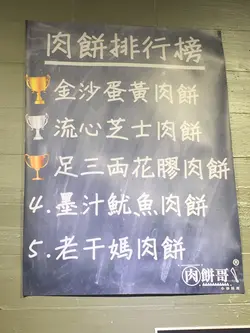 肉餅排行榜
金沙蛋黃肉餅
流心芝士肉餅
足三両花膠肉餅
4.墨汁魷魚肉餅
5.老干媽肉餅
肉餅哥®